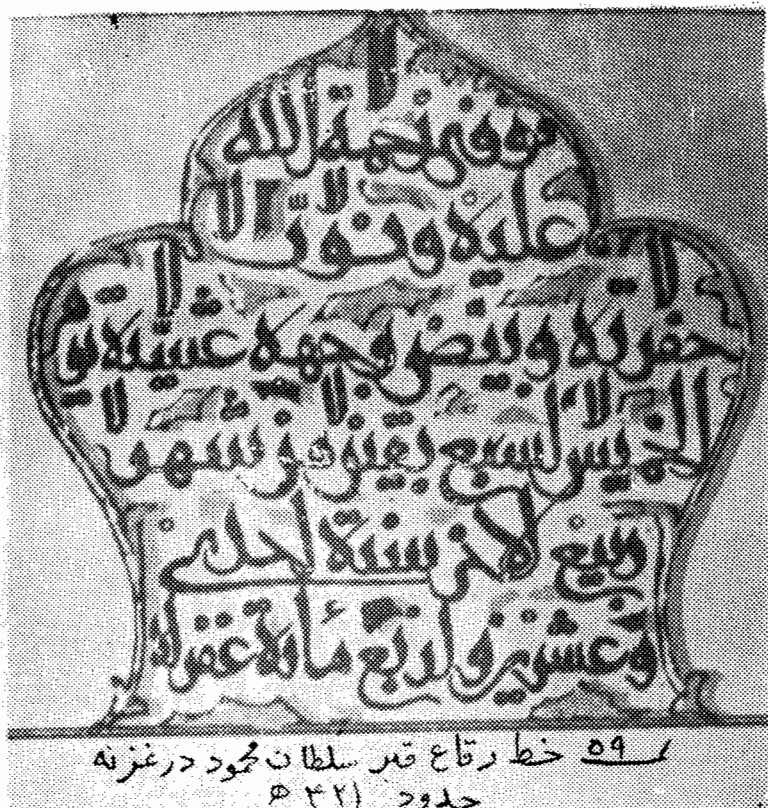 توفي رحمة الله
عليه ونور
حفرته وبيض وجهه عشية يوم
الخميس لسبع بقين من شهر
ربيع الاخر سنة احدى
وعشرين واربع مائة غفر له
۵۹ خط رقاع قبر سلطان محمود در غزنه
حدود ۴۲۱ ھ